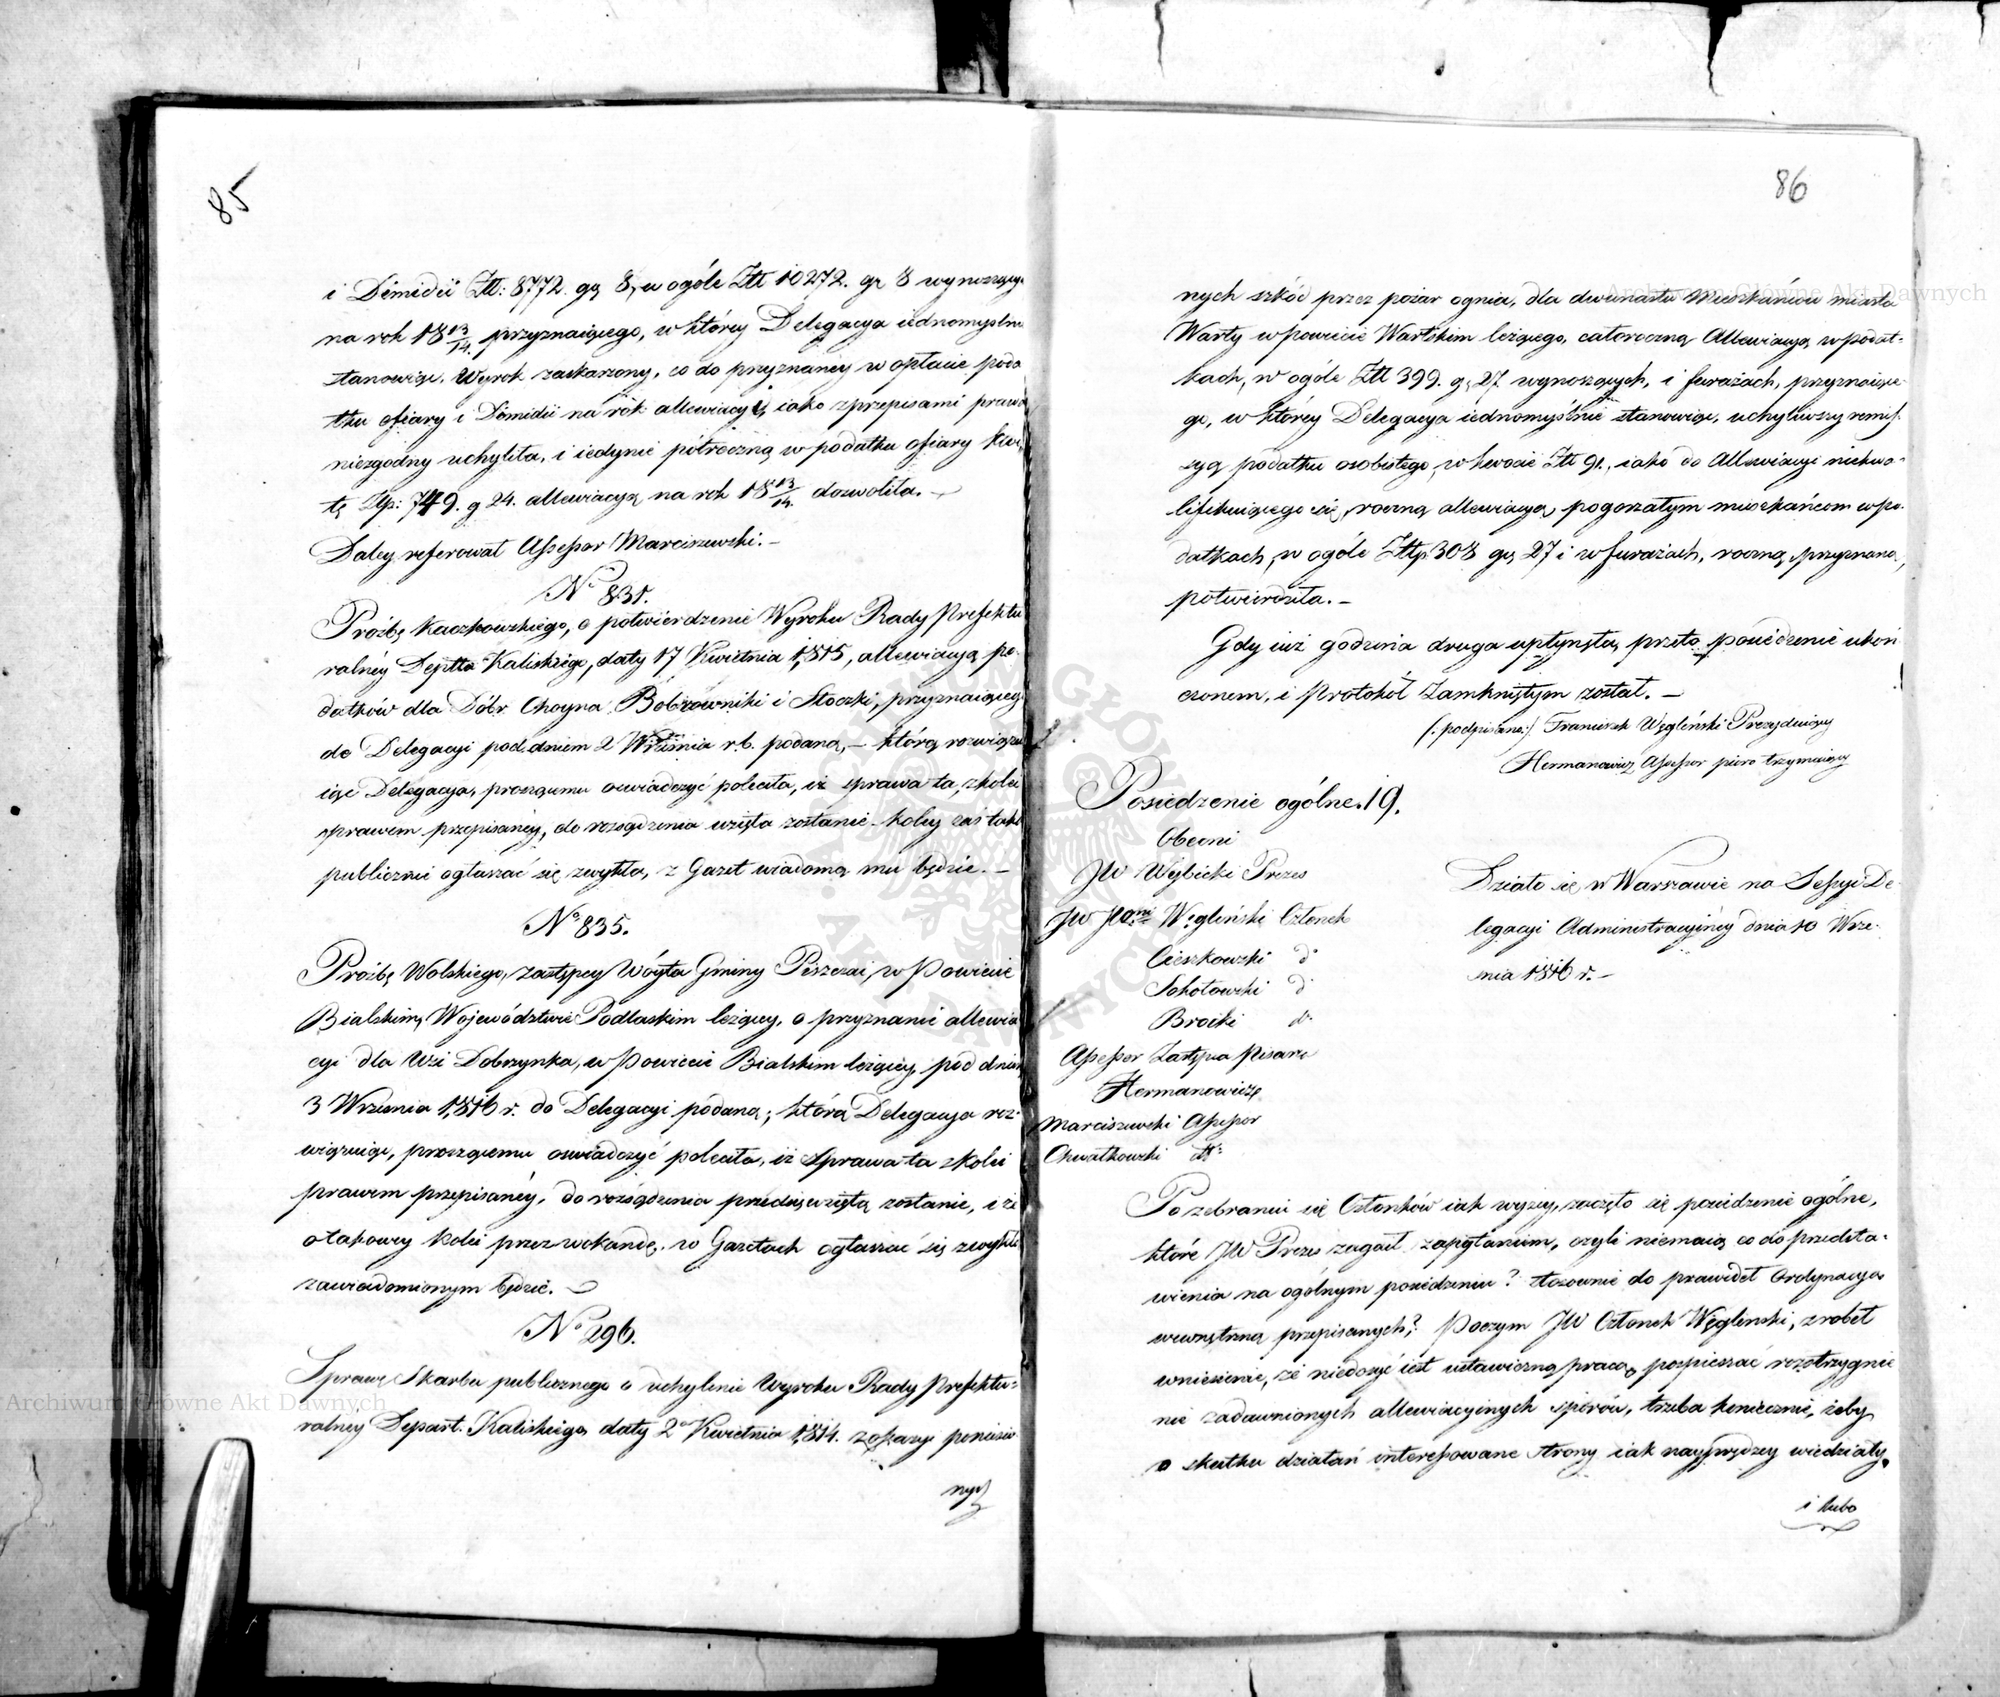 85
i Dimidii Ztt: 8772. gr 8, w ogóle Ztt 10272. gr 8 wynoszące
na rok 18 13/14. przyznaiącego, w którey Delegacya iednomyślnie
stanowiąc, Wyrok zaskarżony, co do przyznaney w opłacie poda
tku ofiary i Dimidii na rok allewiacyi, iako z przepisami prawa
niezgodny uchyliła, i iedynie półroczną w podatku ofiary kwo
tę Ztp: 749. g 24. allewiacyą na rok 18 13/14. dozwoliła. —
Daley referował Assessor Marciszewski. —
No 831.
Prośbę Kaczkowskiego, o potwierdzenie Wyroku Rady Prefektu
ralnéy Deptu Kaliskiego, daty 17 Kwietnia 1815, allewiacyą po-
datków dla Dóbr Choyna Bobrowniki i Stoczki, przyznaiącego
do Delegacyi pod dniem 2 Września r. b. podaną, — którą rozwiązu
iąc Delegacya, proszącemu oswiadczyć poleciła, iż sprawa ta, z kolei
prawem przepisanéy, do rozsądzenia wzięta zostanie koley zaś taka
publicznie ogłaszać się zwykła, z Gazet wiadomą mu będzie. —
No 835.
Prośbę Wolskiego, zastępcy Wóyta Gminy Piszczai, w Powiecie
Bialskim, Województwie Podlaskim leżącey, o przyznanie allewia
cyi dla Wsi Dobrzynka, w Powiecie Bialskim leżącey, pod dniem
3 Września 1816 r. do Delegacyi podaną; którą Delegacya roz-
wiązuiąc, proszącemu oswiadczyć poleciła, iż sprawa ta z kolei
prawem przepisanéy, do rozsądzenia przedsięwziętą zostanie, i że
o takowey kolei przez wokandę, w Gazetach ogłaszać się zwykłą
zawiadomionym będzie. —
No 296.
Sprawę Skarbu publicznego o uchylenie Wyroku Rady Prefektu-
ralney Depart. Kaliskiego, daty 2o Kwietnia 1814. z okazyi poniesio
nych
86
nych szkód przez pożar ognia, dla dwunastu Mieszkańców miasta
Warty w powiecie Wartskim leżącego, całoroczną Allewiacyą w podat-
kach, w ogóle Ztt 399. g. 27 wynoszących, i furażach, przyznaiące-
go, w którey Delegacya iednomyślnie stanowiąc, uchyliwszy remis-
syą podatku osobistego, w kwocie Ztt 91., iako do Allewiacyi niekwa-
lifikuiącego się, roczną allewiacyą, pogorzałym mieszkańcom w po-
datkach, w ogóle Zttp. 308 gr. 27 i w furażach, roczną, przyznaną,
potwierdziła. —
Gdy iuż godzina druga upłynęła, przeto posiedzenie ukoń
czonem, i Protokół zamkniętym został. —
(: podpisano:) Franciszek Węgleński Prezyduiący
Hermanowicz Assessor pióro trzymaiący
Posiedzenie ogólne. 19.
Obecni
JW Wybicki Prezes
JW JPani Węgleński Członek
Cieszkowski do
Sokołowski do
Broiki do
Assessor Zastępca Pisarza
Hermanowicz
Marciszewski Assessor
Chwałkowski do
Działo się w Warszawie na Sessyi De-
legacyi Administracyinéy dnia 10 Wrze-
śnia 1816 r. —
Po zebraniu się Członków iak wyżey, zaczęło się posiedzenie ogólne,
które JW Prezes zagaił zapytaniem, czyli niemaią co do przedsta-
wienia na ogólnym posiedzeniu? stosownie do prawideł Ordynacyą
wewnętrzną przepisanych? Poczym JW Członek Węgleński, zrobił
wniesienie, że niedosyć iest ustawiczną pracą, pospieszać rozstrzygnie
nie zadawnionych allewiacyinych sporów, trzeba koniecznie, żeby
o skutku działań interessowane strony iak nayprędzey wiedziały,
i lubo